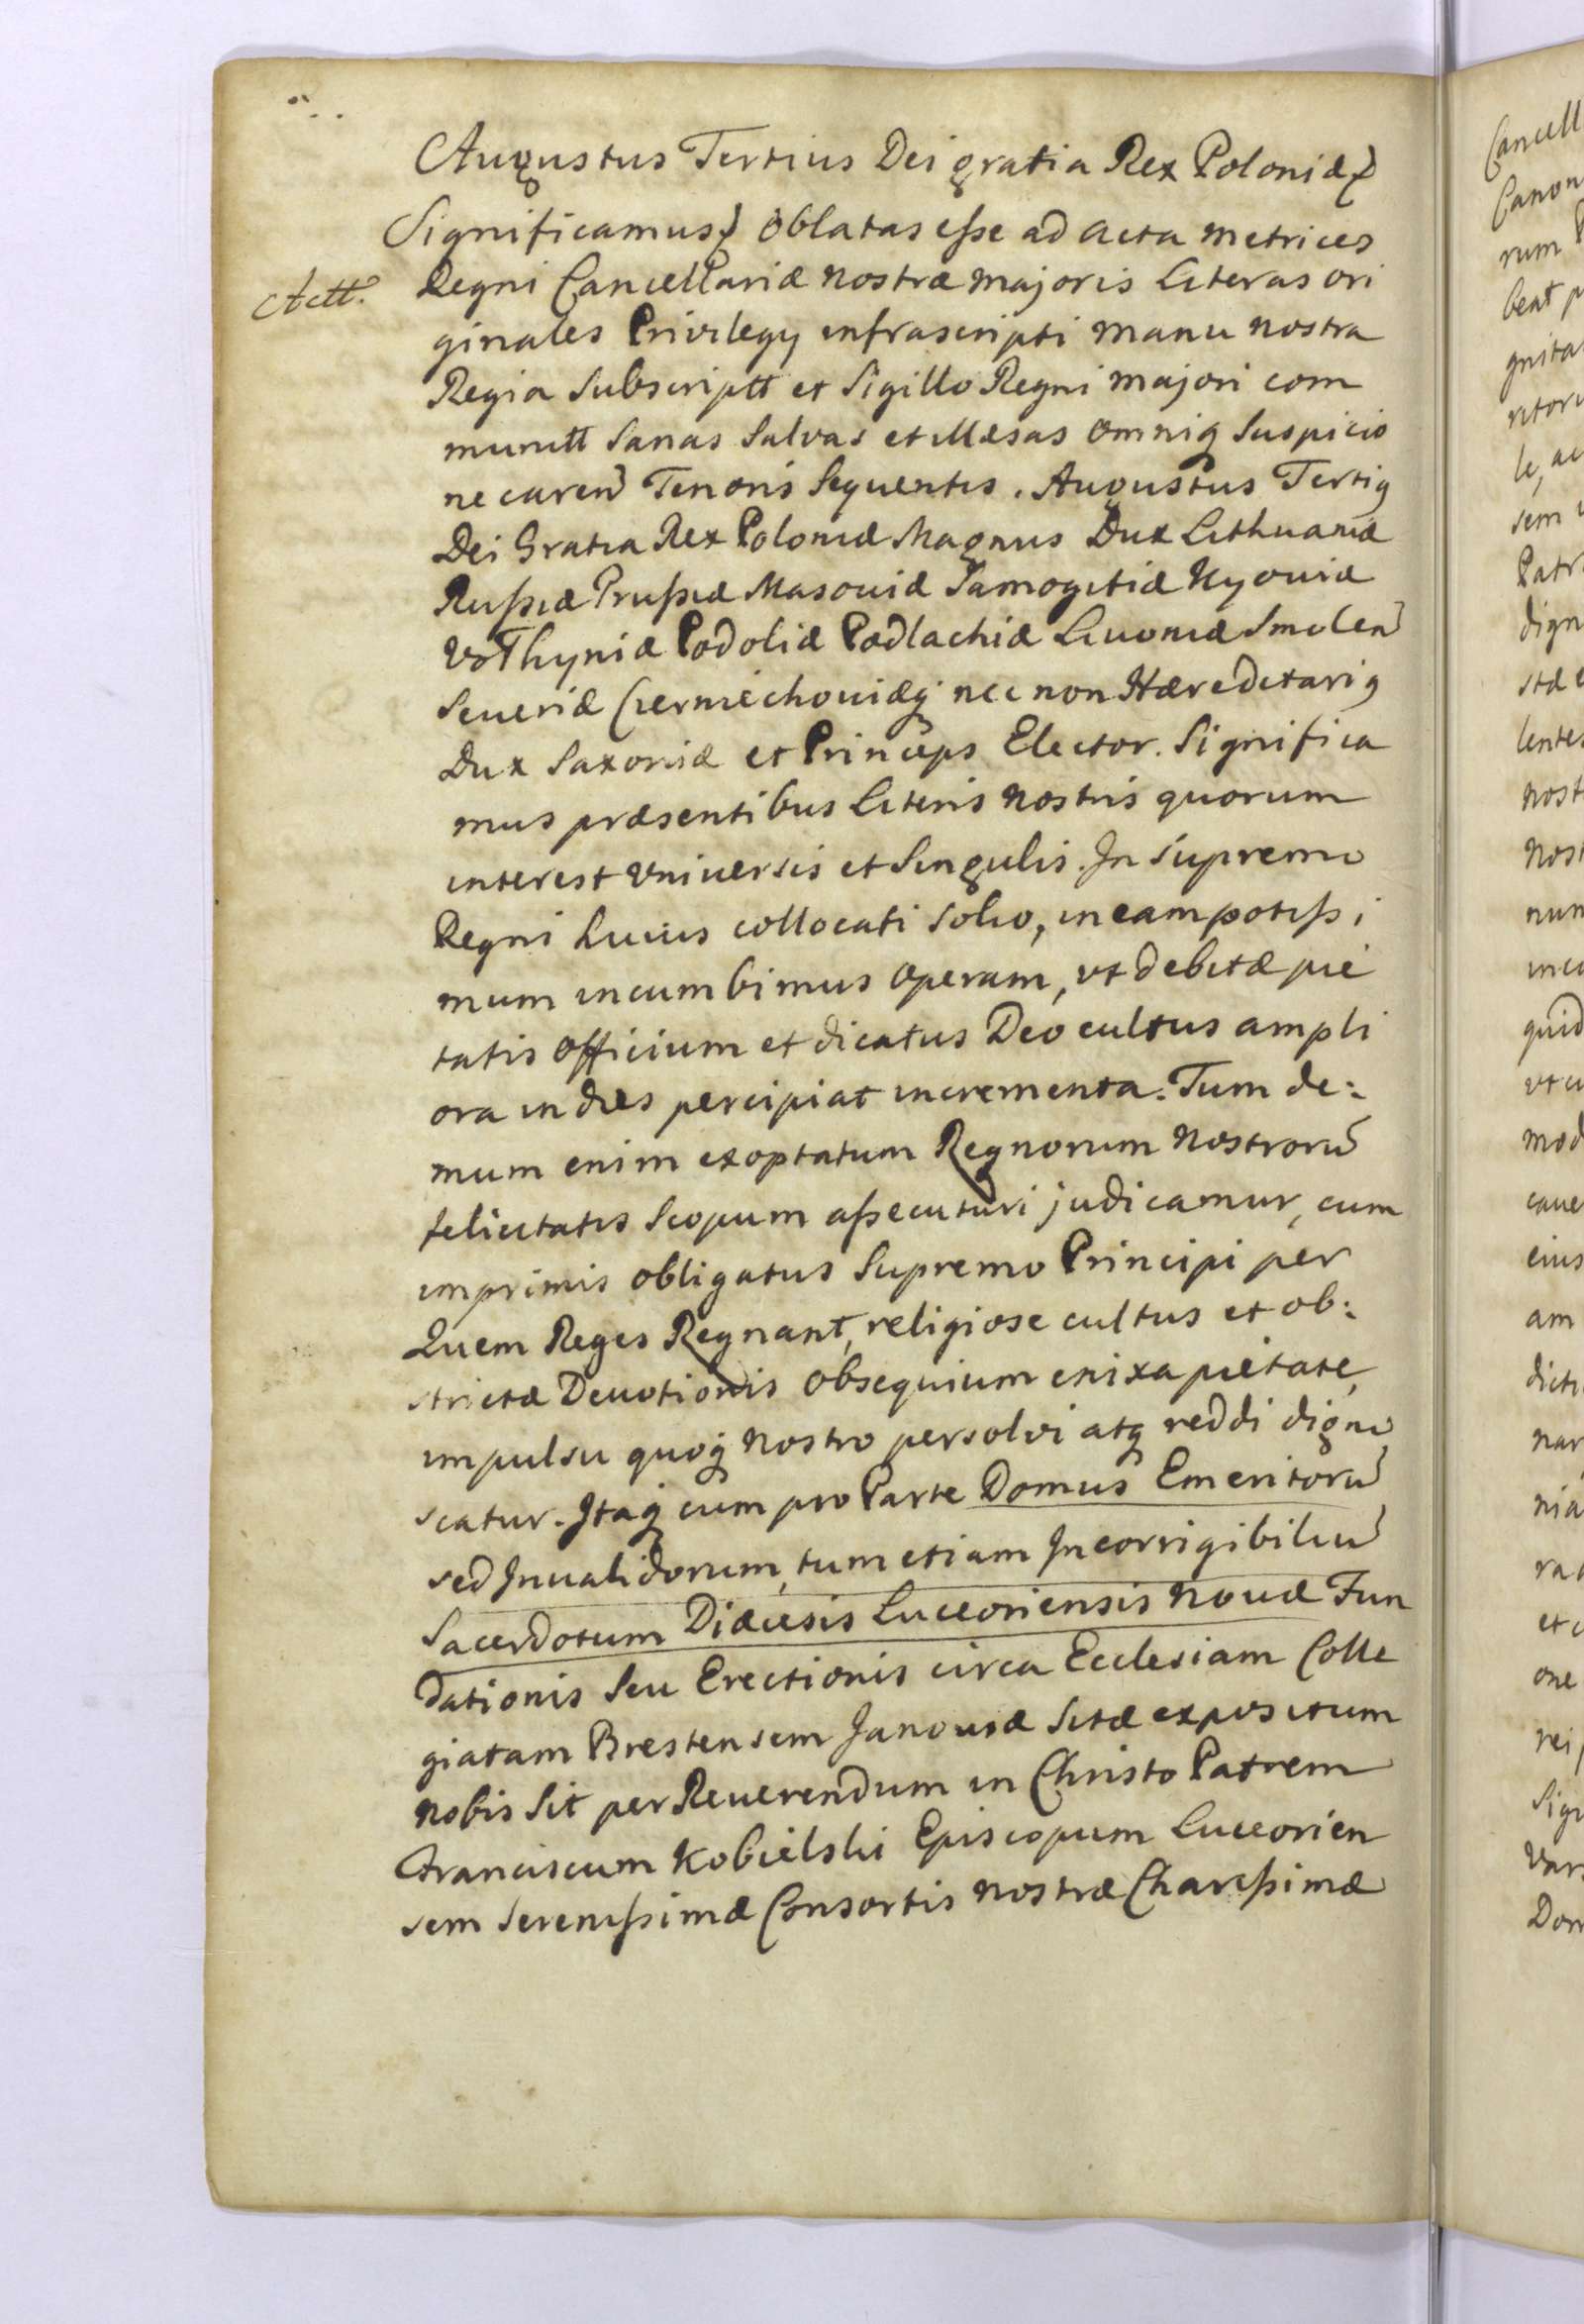 Augustus Tertius Dei gratia Rex Poloniæ
Significamus Oblatas eße ad acta metrices
Actt. Regni Cancellariæ nostræ majoris Literas ori
ginales Privilegy infrascripti manu nostra
Regia Subscriptt et Sigillo Regni majori com
munitt Sanas Salvas et illæsas omniq Suspicio
ne caren Tenoris Sequentis. Augustus Tertiq
Dei Gratia Rex Poloniæ Magnus Dux Lithuaniæ
Rußiæ Prußiæ Masouiæ Samogitiæ Kyouiæ
Volhyniæ Podoliæ Podlachiæ Liuoniæ Smolen
Seueriæ Czerniechouiæq nec non Hæreditariq
Dux Saxoniæ et Princeps Elector. Significa
mus præsentibus Literis Nostris quorum
interest Vniuersis et Singulis. In Supremo
Regni huius collocati Solio, in eam potißi
mum incumbimus operam, vt debitæ pie
tatis officium et dicatus Deo cultus ampli
ora in dies percipiat incrementa. Tum de:
mum enim exoptatum Regnorum Nostroru
felicitatis Scopum aßecuturi judicamur, cum
imprimis obligatus Supremo Principi per
Quem Reges Regnant, religiose cultus et ob:
strictæ Deuotionis Obsequium enixa pietate,
impulsu quoq nostro persolvi atq reddi digno
scatur. Itaq cum pro Parte Domus Emeritoru
sed Inualidorum, tum etiam Incorrigibiliu
Sacerdotum Diæcesis Luceoriensis Nouæ Fun
dationis Seu Erectionis circa Ecclesiam Colle
giatam Brestensem Janouiæ Sitæ expositum
Nobis Sit per Reuerendum in Christo Patrem
Franciscum Kobielski Episcopum Luceorien
sem Serenißimæ Consortis nostræ Charißimæ